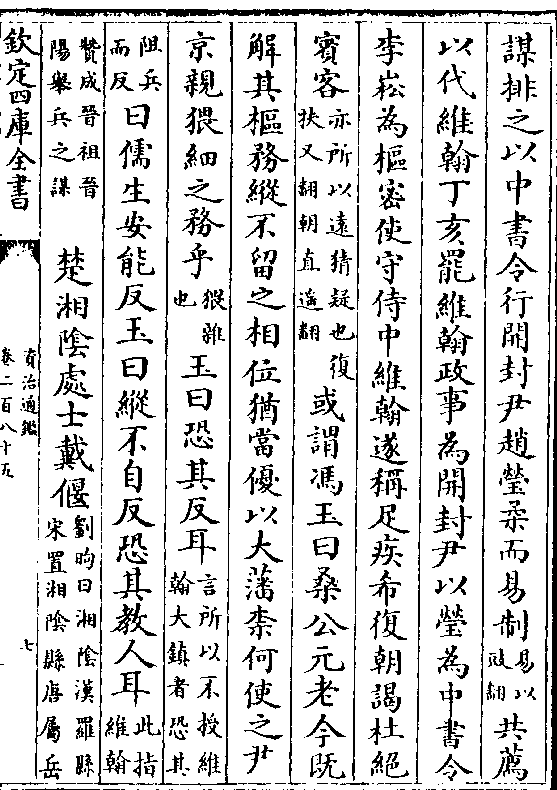 謀排之以中書令行開封尹趙瑩柔而易制易以豉翻共薦
以代維翰丁亥罷維翰政事為開封尹以瑩為中書令
李崧為樞密使守侍中維翰遂稱足疾希復朝謁杜絕
賓客亦所以遠猜疑也復扶又翻朝直遙翻或謂馮玉曰桑公元老今既
解其樞務縱不留之相位猶當優以大藩柰何使之尹
京親猥細之務乎猥雜也玉曰恐其反耳言所以不授維翰大鎮者恐其
阻兵而反曰儒生安能反玉曰縱不自反恐其教人耳此指維翰
贊成晉祖晉陽舉兵之謀 楚湘隂處士戴偃劉昫曰湘隂漢羅縣宋置湘隂縣唐屬岳
欽定四庫全書
資治通鑑
卷二百八十五
七